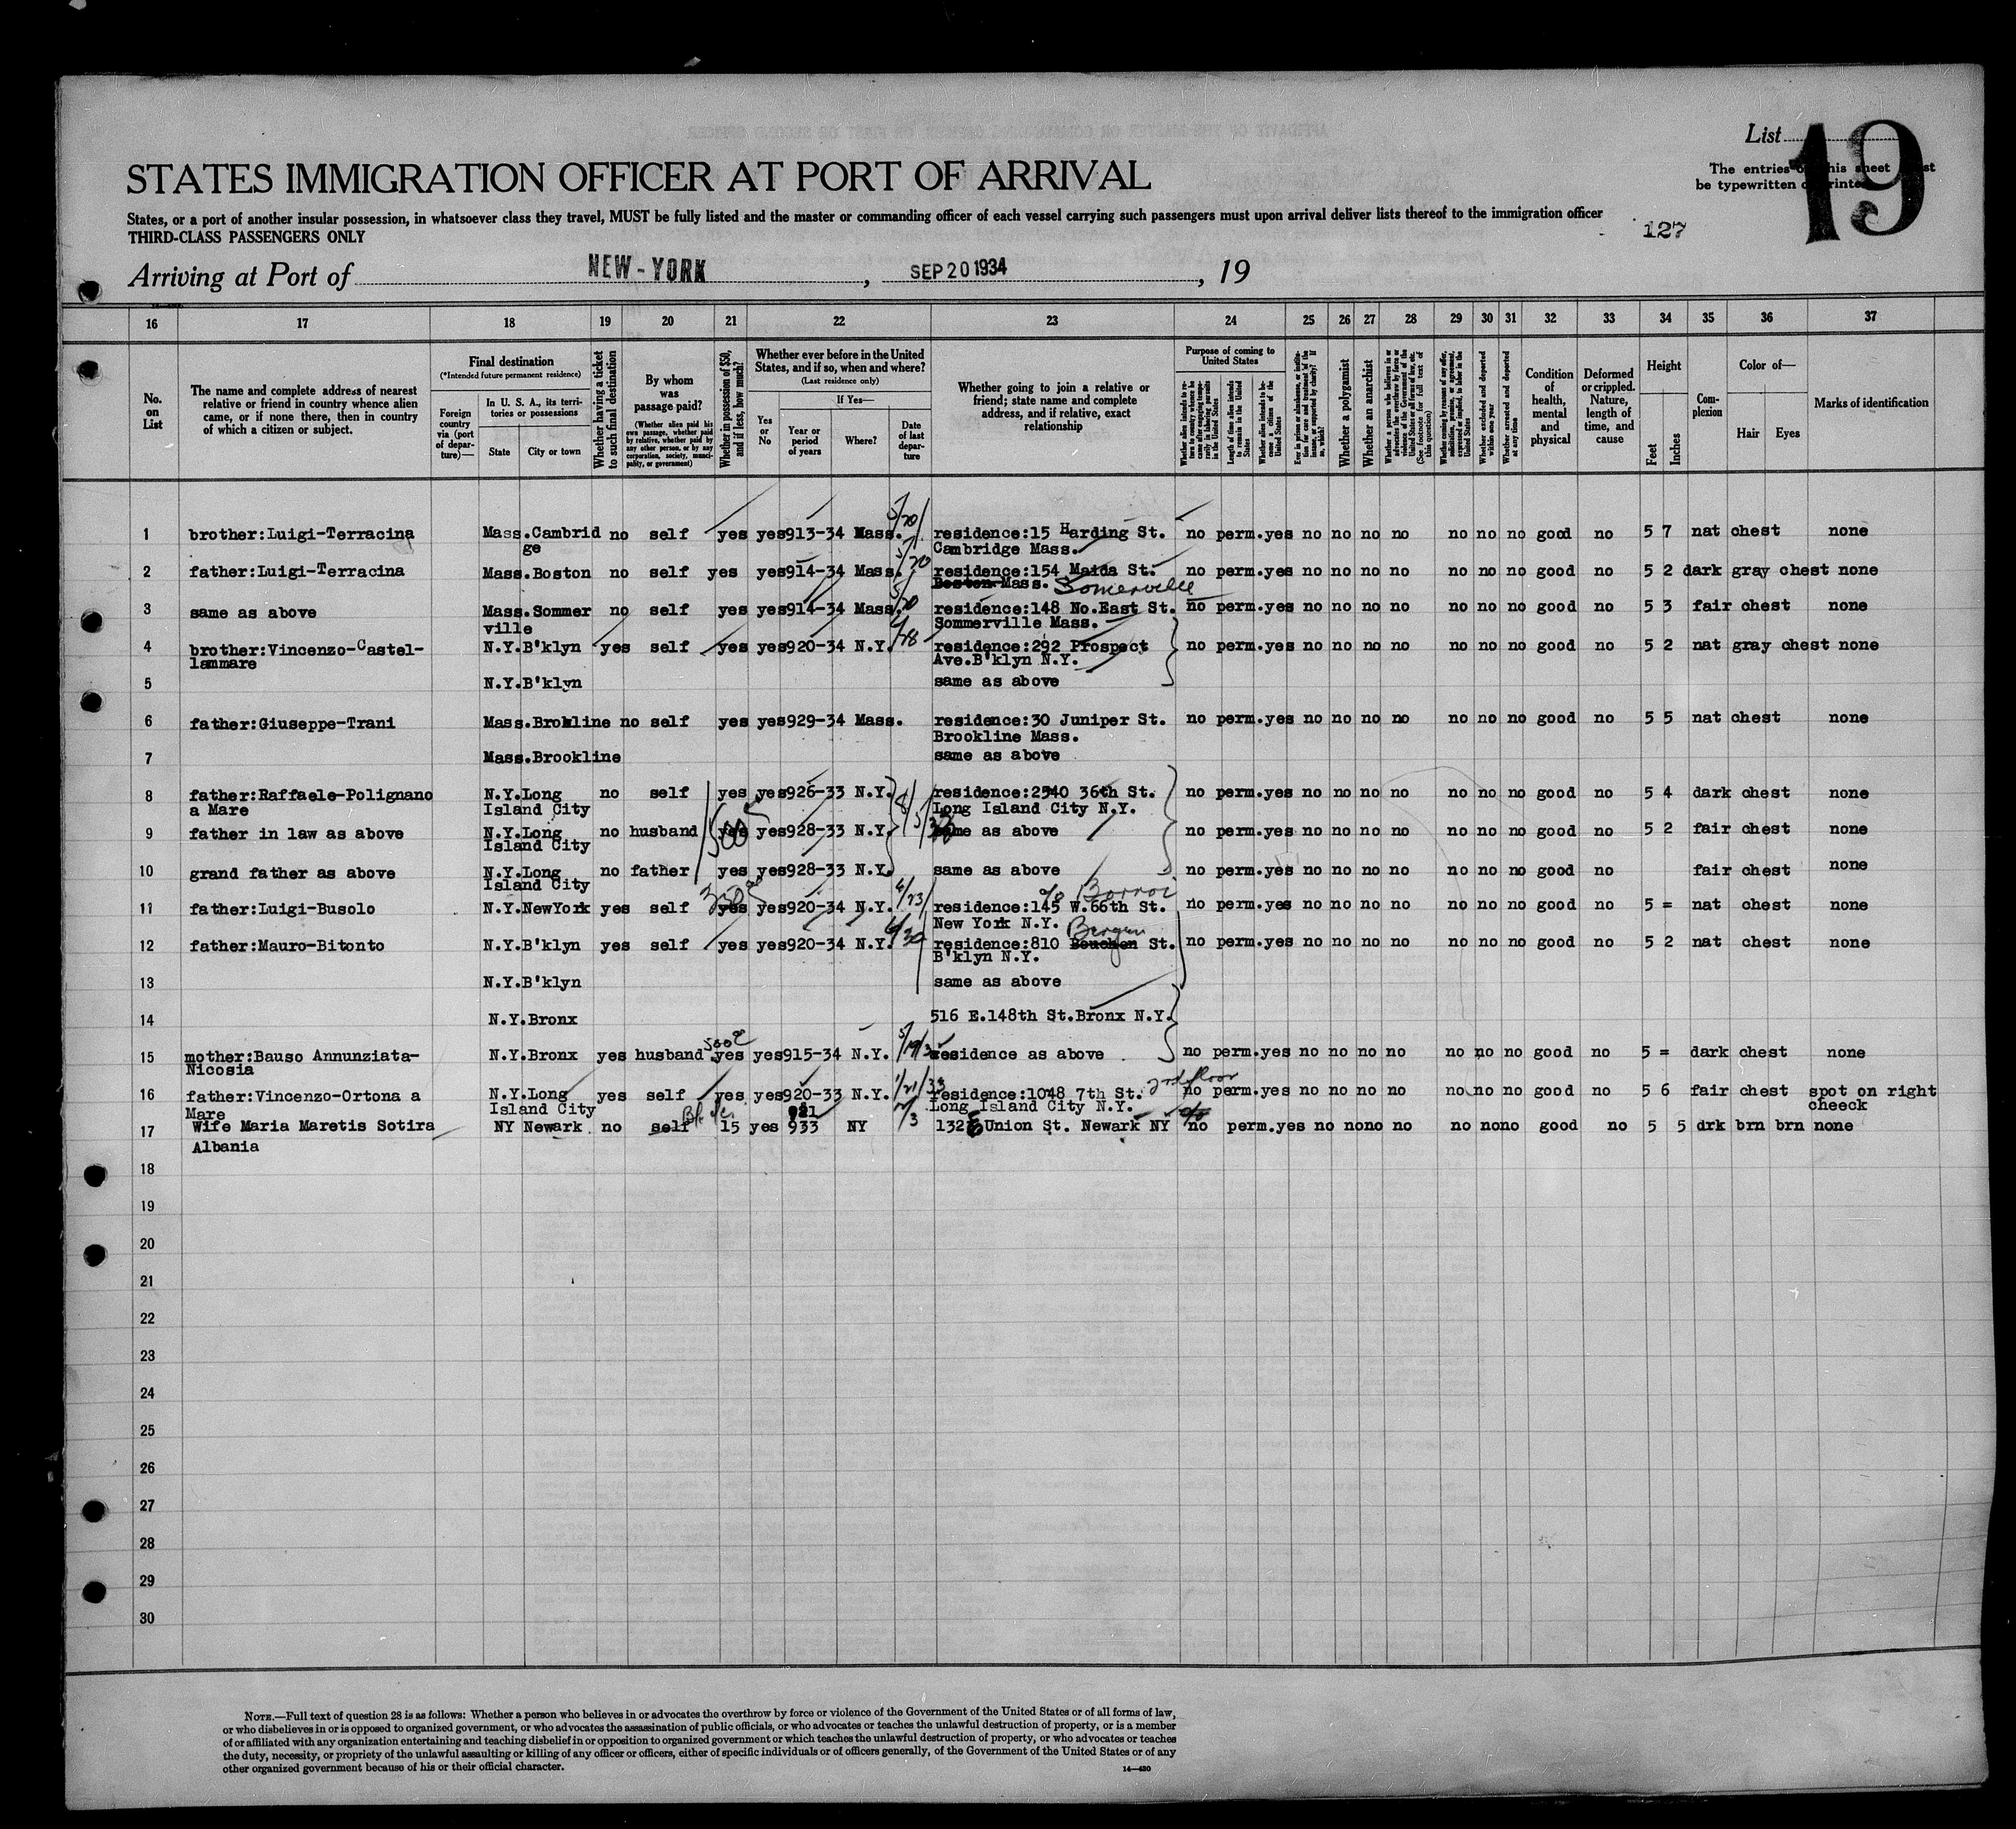 List
19
The entries on this sheet must
be typewritten or printed
STATES IMMIGRATION OFFICER AT PORT OF ARRIVAL
States, or a port of another insular possession, in whatsoever class they travel, MUST be fully listed and the master or commanding officer of each vessel carrying such passengers must upon arrival deliver lists thereof to the immigration officer
THIRD-CLASS PASSENGERS ONLY
127
Arriving at Port of NEW-YORK, SEP 20 1934, 19
16 17 18 19 20 21 22 23 24 25 26 27 28 29 30 31 32 33 34 35 36 37
No. on List
The name and complete address of nearest relative or friend in country whence alien came, or if none there, then in country of which a citizen or subject.
Final destination
(*Intended future permanent residence)
Foreign country via (port of departure)—
In U. S. A., its territories or possessions
State
City or town
Whether having a ticket to such final destination
By whom was passage paid?
(Whether alien paid his own passage, whether paid by relative, whether paid by any other person, or by any corporation, society, municipality, or government)
Whether in possession of $50, and if less, how much?
Whether ever before in the United States, and if so, when and where?
(Last residence only)
Yes or No
If Yes—
Year or period of years
Where?
Date of last departure
Whether going to join a relative or friend; state name and complete address, and if relative, exact relationship
Purpose of coming to United States
Length of time alien intends to remain in the United States
Whether alien intends to become a citizen of the United States
Whether a polygamist
Whether an anarchist
(See footnote for full text of this question)
Whether excluded and deported within one year
Whether arrested and deported at any time
Condition of health, mental and physical
Deformed or crippled. Nature, length of time, and cause
Height
Feet
Inches
Complexion
Color of—
Hair
Eyes
Marks of identification
1 brother:Luigi-Terracina Mass.Cambrid no self yes yes913-34 Mass. 5/20/ residence:15 Harding St. no perm.yes no no no no no no no good no 5 7 nat chest none
ge Cambridge Mass.
2 father:Luigi-Terracina Mass.Boston no self yes yes914-34 Mass. 5/20 residence:154 Maida St. no perm.yes no no no no no no no good no 5 2 dark gray chest none
Boston Mass. Somerville
3 same as above Mass.Sommer no self yes yes914-34 Mass. 5/20 residence:148 No.East St. no perm.yes no no no no no no no good no 5 3 fair chest none
ville Sommerville Mass.
4 brother:Vincenzo-Castel- N.Y.B'klyn yes self yes yes920-34 N.Y. residence:292 Prospect no perm.yes no no no no no no no good no 5 2 nat gray chest none
lammare Ave.B'klyn N.Y.
5 N.Y.B'klyn same as above
6 father:Giuseppe-Trani Mass.Brokline no self yes yes929-34 Mass. residence:30 Juniper St. no perm.yes no no no no no no no good no 5 5 nat chest none
Brookline Mass.
7 Mass.Brookline same as above
8 father:Raffaele-Polignano N.Y.Long no self yes yes926-33 N.Y. residence:2540 36th St. no perm.yes no no no no no no no good no 5 4 dark chest none
a Mare Island City Long Island City N.Y.
9 father in law as above N.Y.Long no husband yes yes928-33 N.Y. same as above no perm.yes no no no no no no no good no 5 2 fair chest none
Island City
10 grand father as above N.Y.Long no father yes yes928-33 N.Y. same as above no perm.yes no no no no no no no good no fair chest none
Island City
11 father:Luigi-Busolo N.Y.NewYork yes self yes yes920-34 N.Y. 4/23/ residence:145 W.66th St. no perm.yes no no no no no no no good no 5 = nat chest none
New York N.Y. Bergen
12 father:Mauro-Bitonto N.Y.B'klyn yes self yes yes920-34 N.Y. 6/30 residence:810 St. no perm.yes no no no no no no no good no 5 2 nat chest none
B'klyn N.Y.
13 N.Y.B'klyn same as above
14 N.Y.Bronx 516 E.148th St.Bronx N.Y.
15 mother:Bauso Annunziata- N.Y.Bronx yes husband yes yes915-34 N.Y. residence as above no perm.yes no no no no no no no good no 5 = dark chest none
Nicosia
16 father:Vincenzo-Ortona a N.Y.Long yes self yes yes920-33 N.Y. 1/21/33 residence:1048 7th St. 2nd floor no perm.yes no no no no no no no good no 5 6 fair chest spot on right
Mare Island City 921 Long Island City N.Y. cheeck
17 Wife Maria Maretis Sotira NY Newark no self 15 yes 933 NY 132 Union St. Newark NY no perm.yes no nono no no nono good no 5 5 drk brn brn none
Albania
18
19
20
21
22
23
24
25
26
27
28
29
30
NOTE.—Full text of question 28 is as follows: Whether a person who believes in or advocates the overthrow by force or violence of the Government of the United States or of all forms of law,
or who disbelieves in or is opposed to organized government, or who advocates the assassination of public officials, or who advocates or teaches the unlawful destruction of property, or is a member
of or affiliated with any organization entertaining and teaching disbelief in or opposition to organized government or which teaches the unlawful destruction of property, or who advocates or teaches
the duty, necessity, or propriety of the unlawful assaulting or killing of any officer or officers, either of specific individuals or of officers generally, of the Government of the United States or of any
other organized government because of his or their official character.
14—430